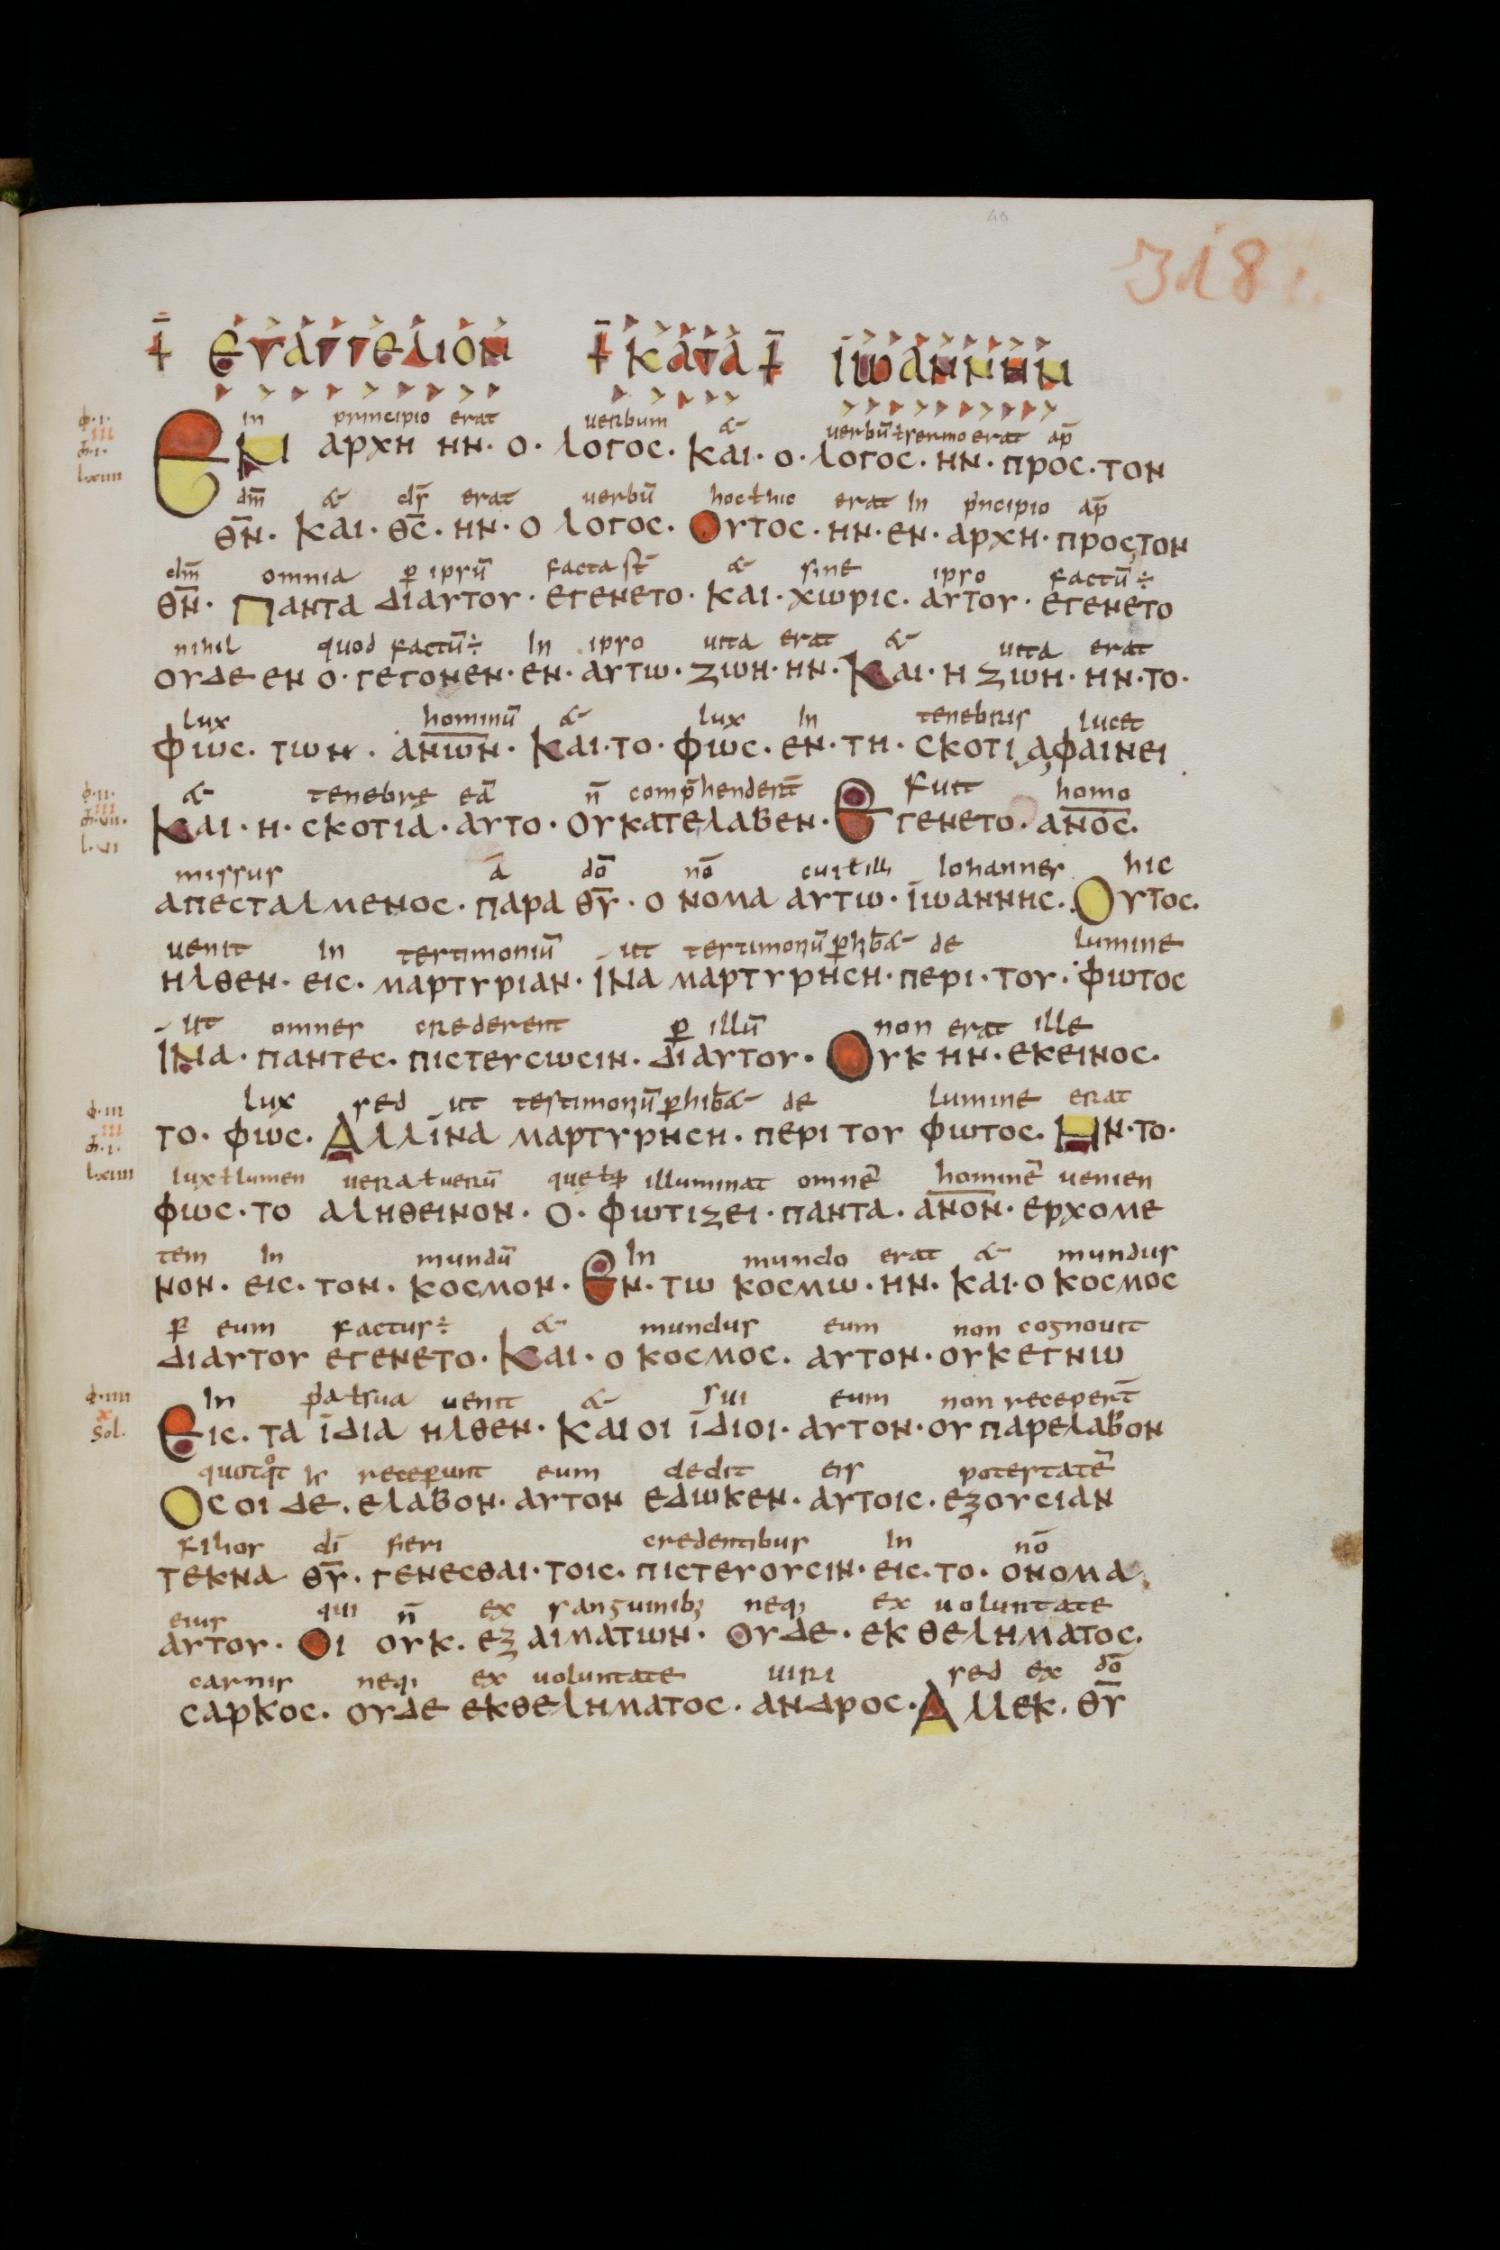 318.
ⲉⲩⲁⲅⲅⲉⲗⲓⲟⲛ ⲕⲁⲧⲁ ⲓⲱⲁⲛⲛⲏⲛ
in principio erat uerbum & uerbū ł sermo erat ap̄
ΕΝ ΑΡΧΗ ΗΝ· Ο· ΛΟΓΟC· ΚΑΙ· Ο· ΛΟΓΟC· ΗΝ· ΠΡΟC· ΤΟΝ
dm̄ & ds̄ erat uerbū hoc ł hic erat In p̄ncipio ap̄
Θ̅Ν̅· ΚΑΙ· Θ̅C̅· ΗΝ· Ο ΛΟΓΟC· ΟΥΤΟC· ΗΝ· ΕΝ· ΑΡΧΗ· ΠΡΟC,ΤΟΝ
dm̄ omnia ꝑ ipsū facta st̄ & sine ipso factū÷
Θ̅Ν̅· ΠΑΝΤΑ ΔΙΑΥΤΟΥ· ΕΓΕΝΕΤΟ· ΚΑΙ· ΧΩΡΙC· ΑΥΤΟΥ· ΕΓΕΝΕΤΟ
nihil quod factū÷ In ipso uita erat & uita erat
ΟΥΔΕ ΕΝ Ο· ΓΕΓΟΝΕΝ· ΕΝ· ΑΥΤΩ· ΖΩΗ· ΗΝ· ΚΑΙ· Η ΖΩΗ· ΗΝ· ΤΟ·
lux hominū & lux In tenebris lucet
ΦΩC· ΤΩΝ· Α̅Ν̅Ω̅Ν̅· ΚΑΙ· ΤΟ· ΦΩC· ΕΝ· ΤΗ· CΚΟΤΙ,Α,ΦΑΙΝΕΙ
& tenebre eā n̄ comp̄hendert̄ Fuit homo
ΚΑΙ· Η· CΚΟΤΙΑ· ΑΥΤΟ· ΟΥΚΑΤΕΛΑΒΕΝ· ΕΓΕΝΕΤΟ· Α̅Ν̅Ο̅C̅·
missus ā dō nō cui ł illi Iohannes hic
ΑΠΕCΤΑΛΜΕΝΟC· ΠΑΡΑ Θ̅Υ̅· Ο ΝΟΜΑ ΑΥΤΩ· ΪΩΑΝΝΗC· ΟΥΤΟC·
uenit In testimoniū ut testimoniū ꝑhib& de lumine
ΗΛΘΕΝ· ΕΙC· ΜΑΡΤΥΡΙΑΝ· ΙΝΑ ΜΑΡΤΥΡΗCΗ· ΠΕΡΙ· ΤΟΥ· ΦΩΤΟC
ut omnes crederent ꝑ illū non erat ille
ΙΝΑ· ΠΑΝΤΕC· ΠΙCΤΕΥCΩCΙΝ· ΔΙΑΥΤΟΥ· ΟΥΚ ΗΝ· ΕΚΕΙΝΟC·
lux sed ut testimoniū ꝑhib& de lumine erat
ΤΟ· ΦΩC· ΑΛΛΪΝΑ ΜΑΡΤΥΡΗCΗ· ΠΕΡΙ ΤΟΥ ΦΩΤΟC· ΗΝ· ΤΟ·
lux ł lumen uera ł uerū illuminat omnē hominē uenien
ΦΩC· ΤΟ ΑΛΗΘΕΙΝΟΝ· Ο· ΦΩΤΙΖΕΙ· ΠΑΝΤΑ· Α̅Ν̅Ο̅Ν̅· ΕΡΧΟΜΕ
tem In mundū In mundo erat & mundus
ΝΟΝ· ΕΙC· ΤΟΝ· ΚΟCΜΟΝ· ΕΝ· ΤΩ ΚΟCΜΩ· ΗΝ· ΚΑΙ· Ο ΚΟCΜΟC
ꝑ eum factus÷ & mundus eum non cognouit
ΔΙΑΥΤΟΥ ΕΓΕΝΕΤΟ· ΚΑΙ· Ο ΚΟCΜΟC· ΑΥΤΟΝ· ΟΥΚΕΓΝΩ
In uenit & sui eum non recepert̄
ΕΙC· ΤΑ ΪΔΙΑ ΗΛΘΕΝ· ΚΑΙ ΟΙ ΪΔΙΟΙ· ΑΥΤΟΝ· ΟΥ ΠΑΡΕΛΑΒΟΝ
receperunt eum dedit eis potestatē
ΟCΟΙ ΔΕ· ΕΛΑΒΟΝ· ΑΥΤΟΝ ΕΔΩΚΕΝ· ΑΥΤΟΙC· ΕΞΟΥCΙΑΝ
filios dī fieri credentibus In nō
ΤΕΚΝΑ Θ̅Υ̅· ΓΕΝΕCΘΑΙ· ΤΟΙC· ΠΙCΤΕΥΟΥCΙΝ· ΕΙC· ΤΟ· ΟΝΟΜΑ
eius qui n̄ ex sanguinib; neq; ex uoluntate
ΑΥΤΟΥ· ΟΙ ΟΥΚ· ΕΞ ΑΙΜΑΤΩΝ· ΟΥΔΕ· ΕΚ ΘΕΛΗΜΑΤΟC·
carnis neq; ex uoluntate uiri sed ex dō
CΑΡΚΟC· ΟΥΔΕ ΕΚΘΕΛΗΜΑΤΟC· ΑΝΔΡΟC· ΑΛΛΕΚ· Θ̅Υ̅